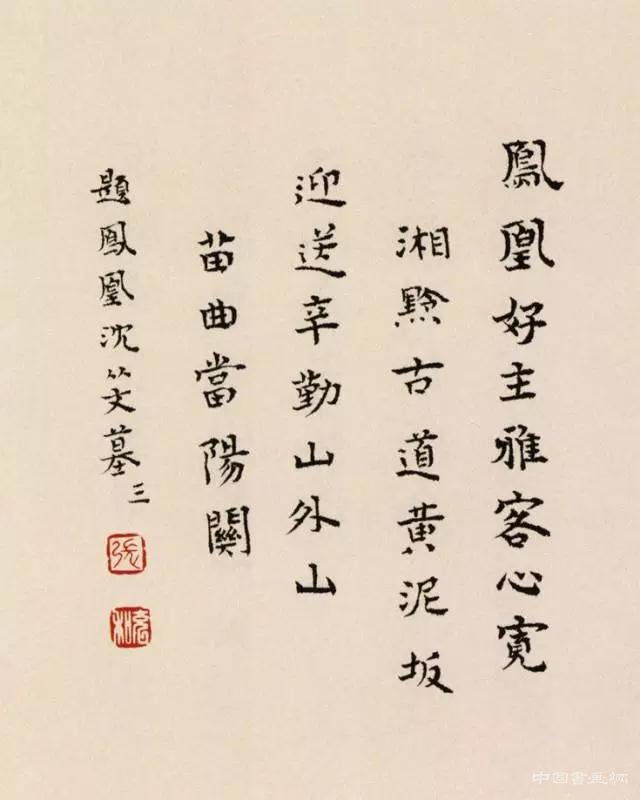 鳳凰好主雅客心寬
湘黔古道黄泥坂
迎送辛勤山外山
苗曲當陽關
題鳳凰沈从文墓三
張
充和
中国書画網